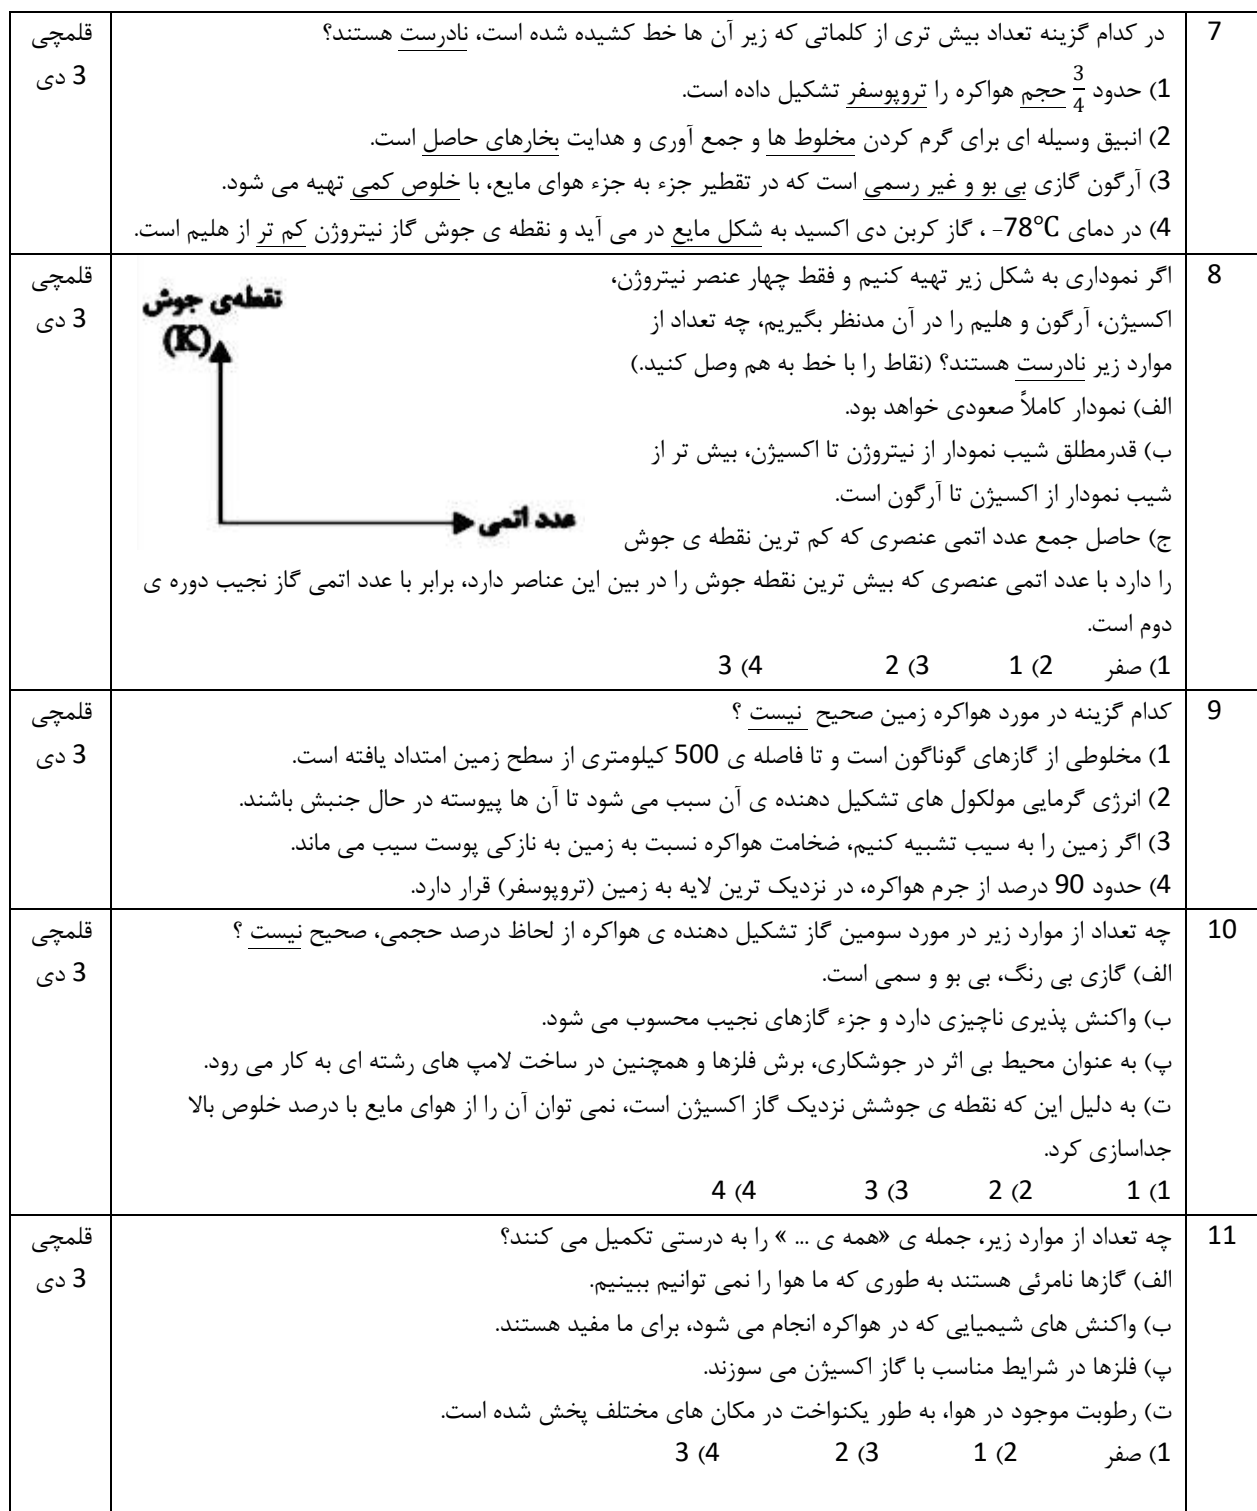 7
در کدام گزینه تعداد بیش تری از کلماتی که زیر آن ها خط کشیده شده است، نادرست هستند؟
قلمچی
3 دی
1) حدود 3/4 حجم هواکره را تروپوسفر تشکیل داده است.
2) انبیق وسیله ای برای گرم کردن مخلوط ها و جمع آوری و هدایت بخارهای حاصل است.
3) آرگون گازی بی بو و غیر رسمی است که در تقطیر جزء به جزء هوای مایع، با خلوص کمی تهیه می شود.
4) در دمای 78°C- ، گاز کربن دی اکسید به شکل مایع در می آید و نقطه ی جوش گاز نیتروژن کم تر از هلیم است.
8
اگر نموداری به شکل زیر تهیه کنیم و فقط چهار عنصر نیتروژن،
قلمچی
3 دی
اکسیژن، آرگون و هلیم را در آن مدنظر بگیریم، چه تعداد از
موارد زیر نادرست هستند؟ (نقاط را با خط به هم وصل کنید.)
الف) نمودار کاملاً صعودی خواهد بود.
ب) قدرمطلق شیب نمودار از نیتروژن تا اکسیژن، بیش تر از
شیب نمودار از اکسیژن تا آرگون است.
ج) حاصل جمع عدد اتمی عنصری که کم ترین نقطه ی جوش
را دارد با عدد اتمی عنصری که بیش ترین نقطه جوش را در بین این عناصر دارد، برابر با عدد اتمی گاز نجیب دوره ی
دوم است.
نقطه‌ی جوش
(K)
عدد اتمی
1) صفر 2) 1 3) 2 4) 3
9
کدام گزینه در مورد هواکره زمین صحیح نیست ؟
قلمچی
3 دی
1) مخلوطی از گازهای گوناگون است و تا فاصله ی 500 کیلومتری از سطح زمین امتداد یافته است.
2) انرژی گرمایی مولکول های تشکیل دهنده ی آن سبب می شود تا آن ها پیوسته در حال جنبش باشند.
3) اگر زمین را به سیب تشبیه کنیم، ضخامت هواکره نسبت به زمین به نازکی پوست سیب می ماند.
4) حدود 90 درصد از جرم هواکره، در نزدیک ترین لایه به زمین (تروپوسفر) قرار دارد.
10
چه تعداد از موارد زیر در مورد سومین گاز تشکیل دهنده ی هواکره از لحاظ درصد حجمی، صحیح نیست ؟
قلمچی
3 دی
الف) گازی بی رنگ، بی بو و سمی است.
ب) واکنش پذیری ناچیزی دارد و جزء گازهای نجیب محسوب می شود.
پ) به عنوان محیط بی اثر در جوشکاری، برش فلزها و همچنین در ساخت لامپ های رشته ای به کار می رود.
ت) به دلیل این که نقطه ی جوشش نزدیک گاز اکسیژن است، نمی توان آن را از هوای مایع با درصد خلوص بالا
جداسازی کرد.
1) 1 2) 2 3) 3 4) 4
11
چه تعداد از موارد زیر، جمله ی «همه ی ... » را به درستی تکمیل می کنند؟
قلمچی
3 دی
الف) گازها نامرئی هستند به طوری که ما هوا را نمی توانیم ببینیم.
ب) واکنش های شیمیایی که در هواکره انجام می شود، برای ما مفید هستند.
پ) فلزها در شرایط مناسب با گاز اکسیژن می سوزند.
ت) رطوبت موجود در هوا، به طور یکنواخت در مکان های مختلف پخش شده است.
1) صفر 2) 1 3) 2 4) 3